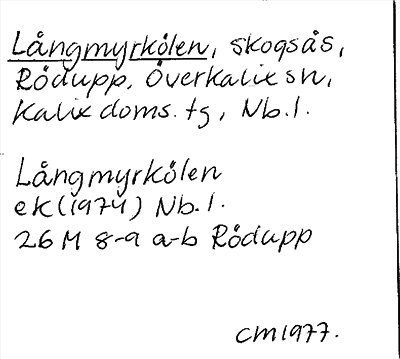 Långmyrkölen, skogsås,
Rödupp, Överkalix sn,
Kalix doms. tg, Nb.l.
Långmyrkölen
ek (1974) Nb.l.
26 M 8-9 a-b Rödupp
CM 1977.